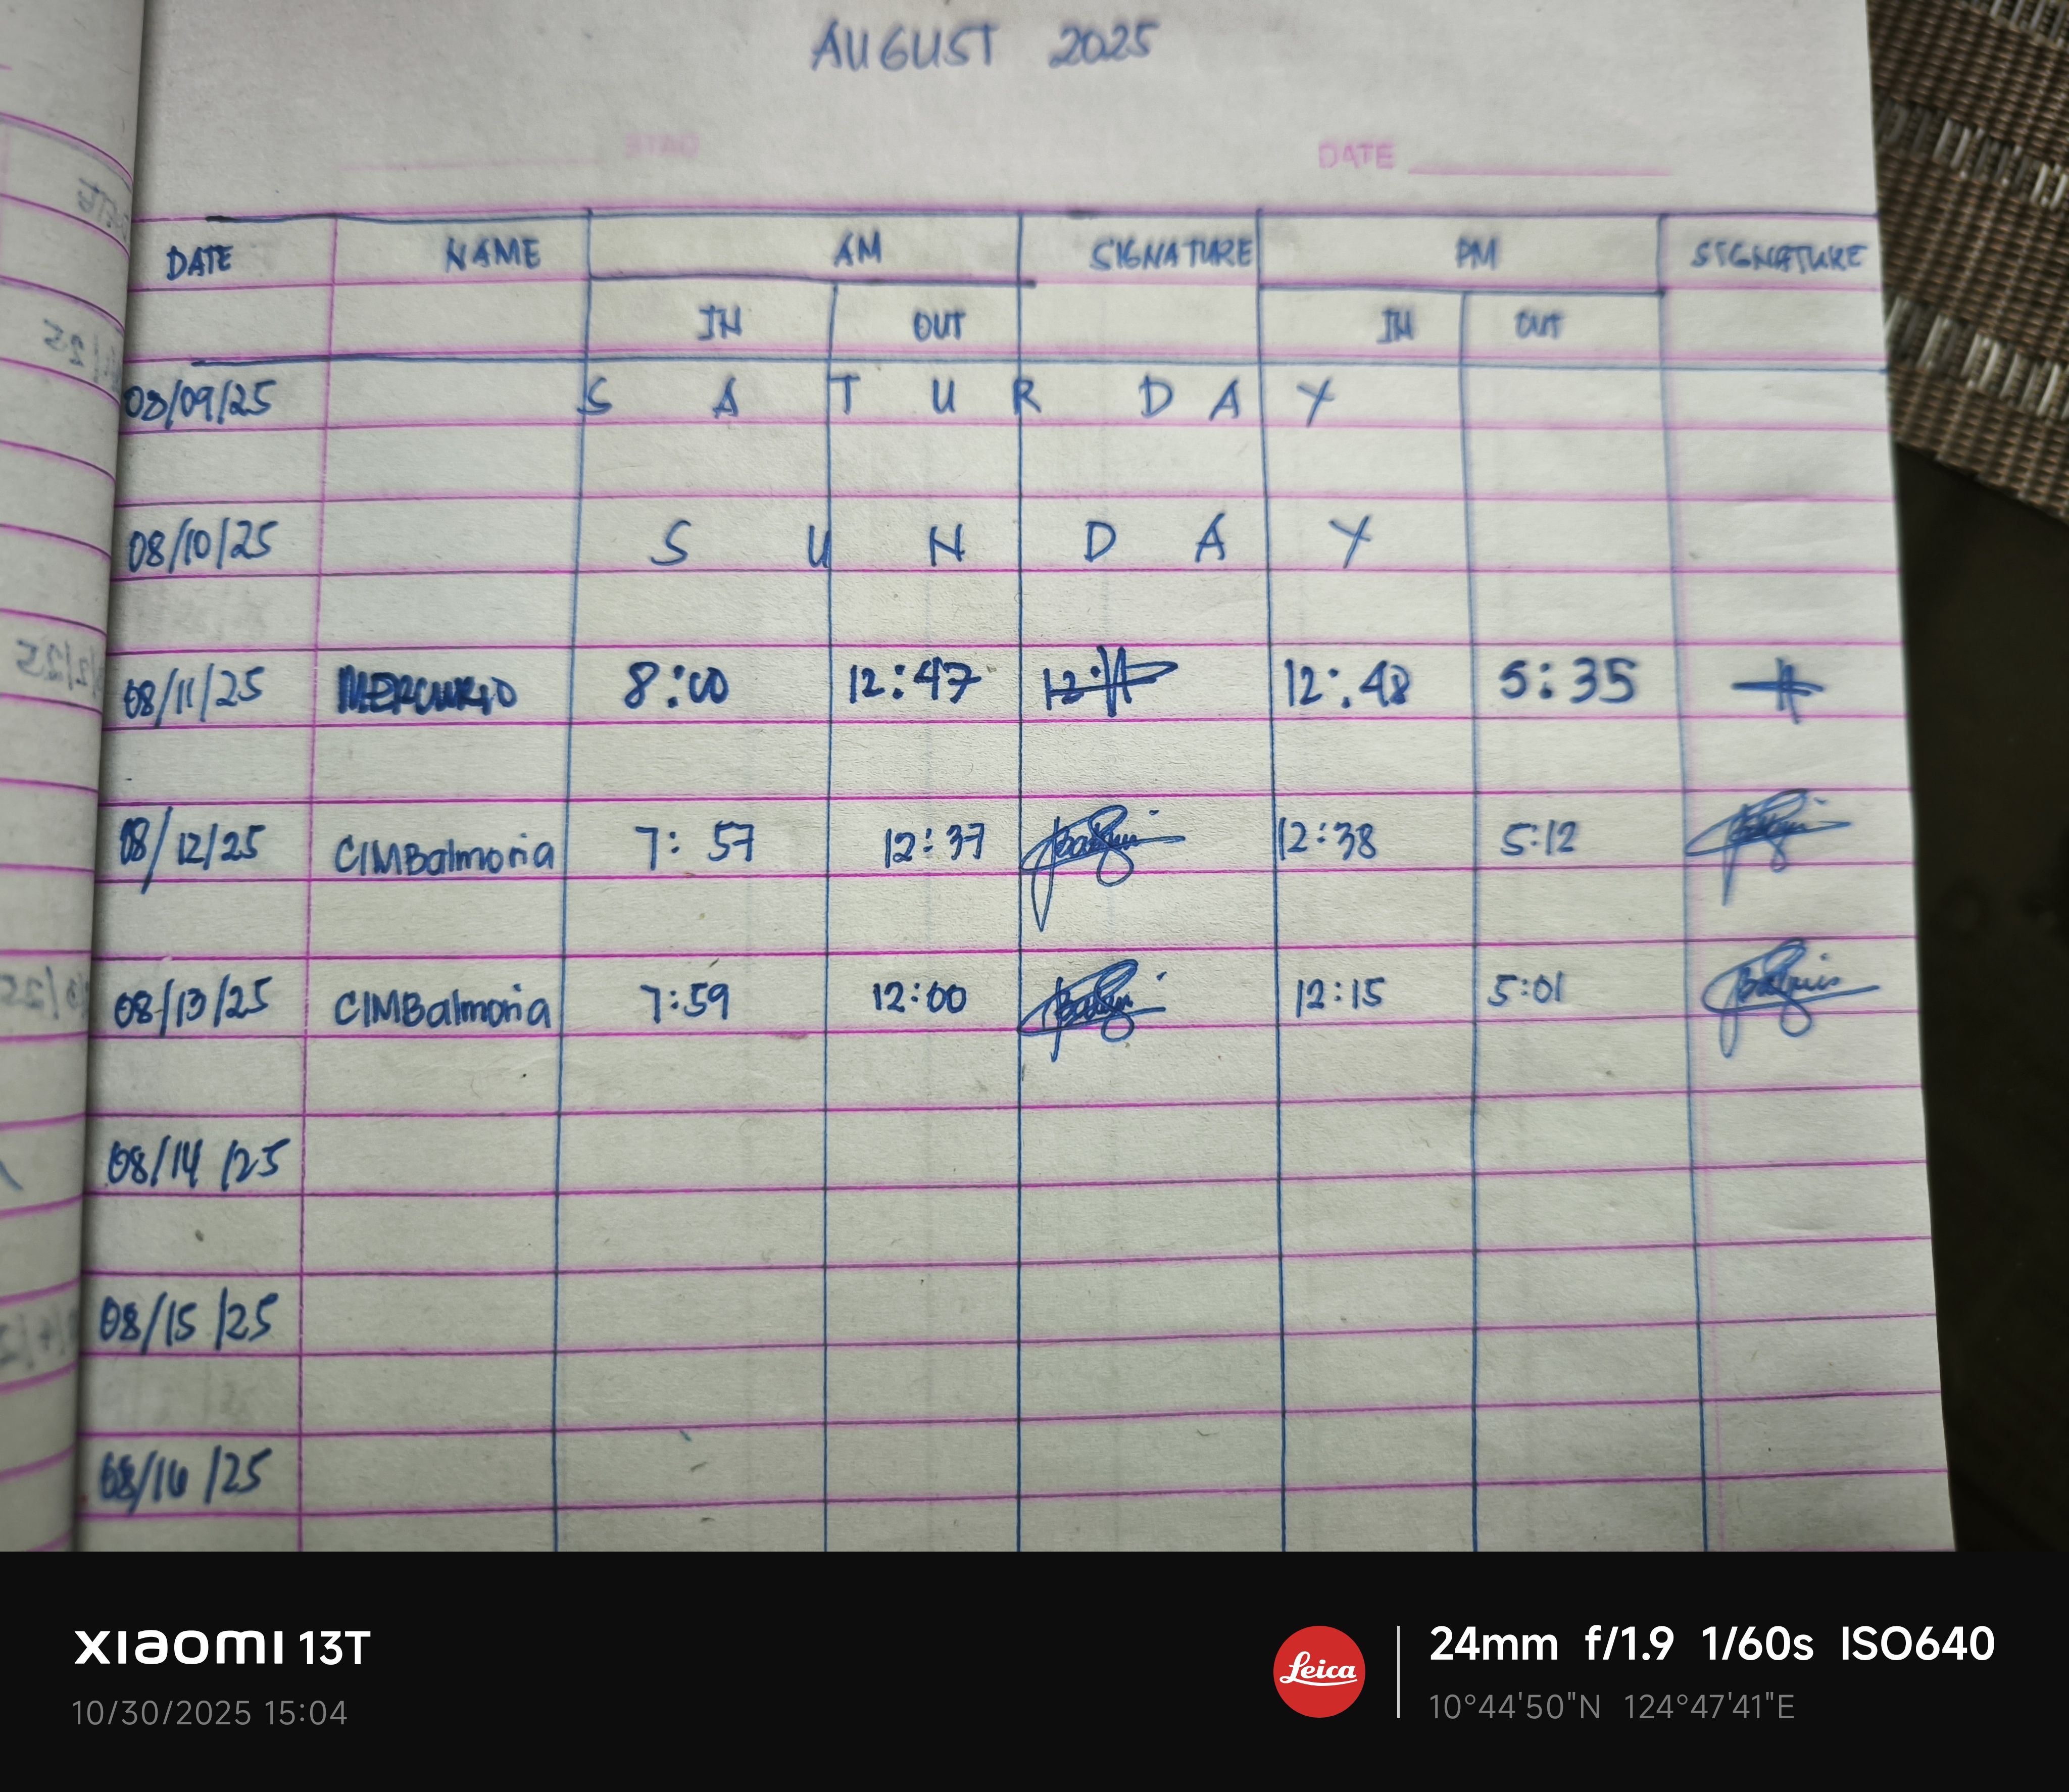 AUGUST 2025
DATE
DATE NAME AM SIGNATURE PM SIGNATURE
IN OUT IN OUT
08/09/25 S A T U R D A Y
08/10/25 S U N D A Y
08/11/25 MERCURIO 8:00 12:47 12:48 5:35
08/12/25 CIMBalmoria 7:57 12:37 12:38 5:12
08/13/25 CIMBalmoria 7:59 12:00 12:15 5:01
08/14/25
08/15/25
08/16/25
XIAOMI 13T
10/30/2025 15:04
Leica
24mm f/1.9 1/60s ISO640
10°44'50"N 124°47'41"E